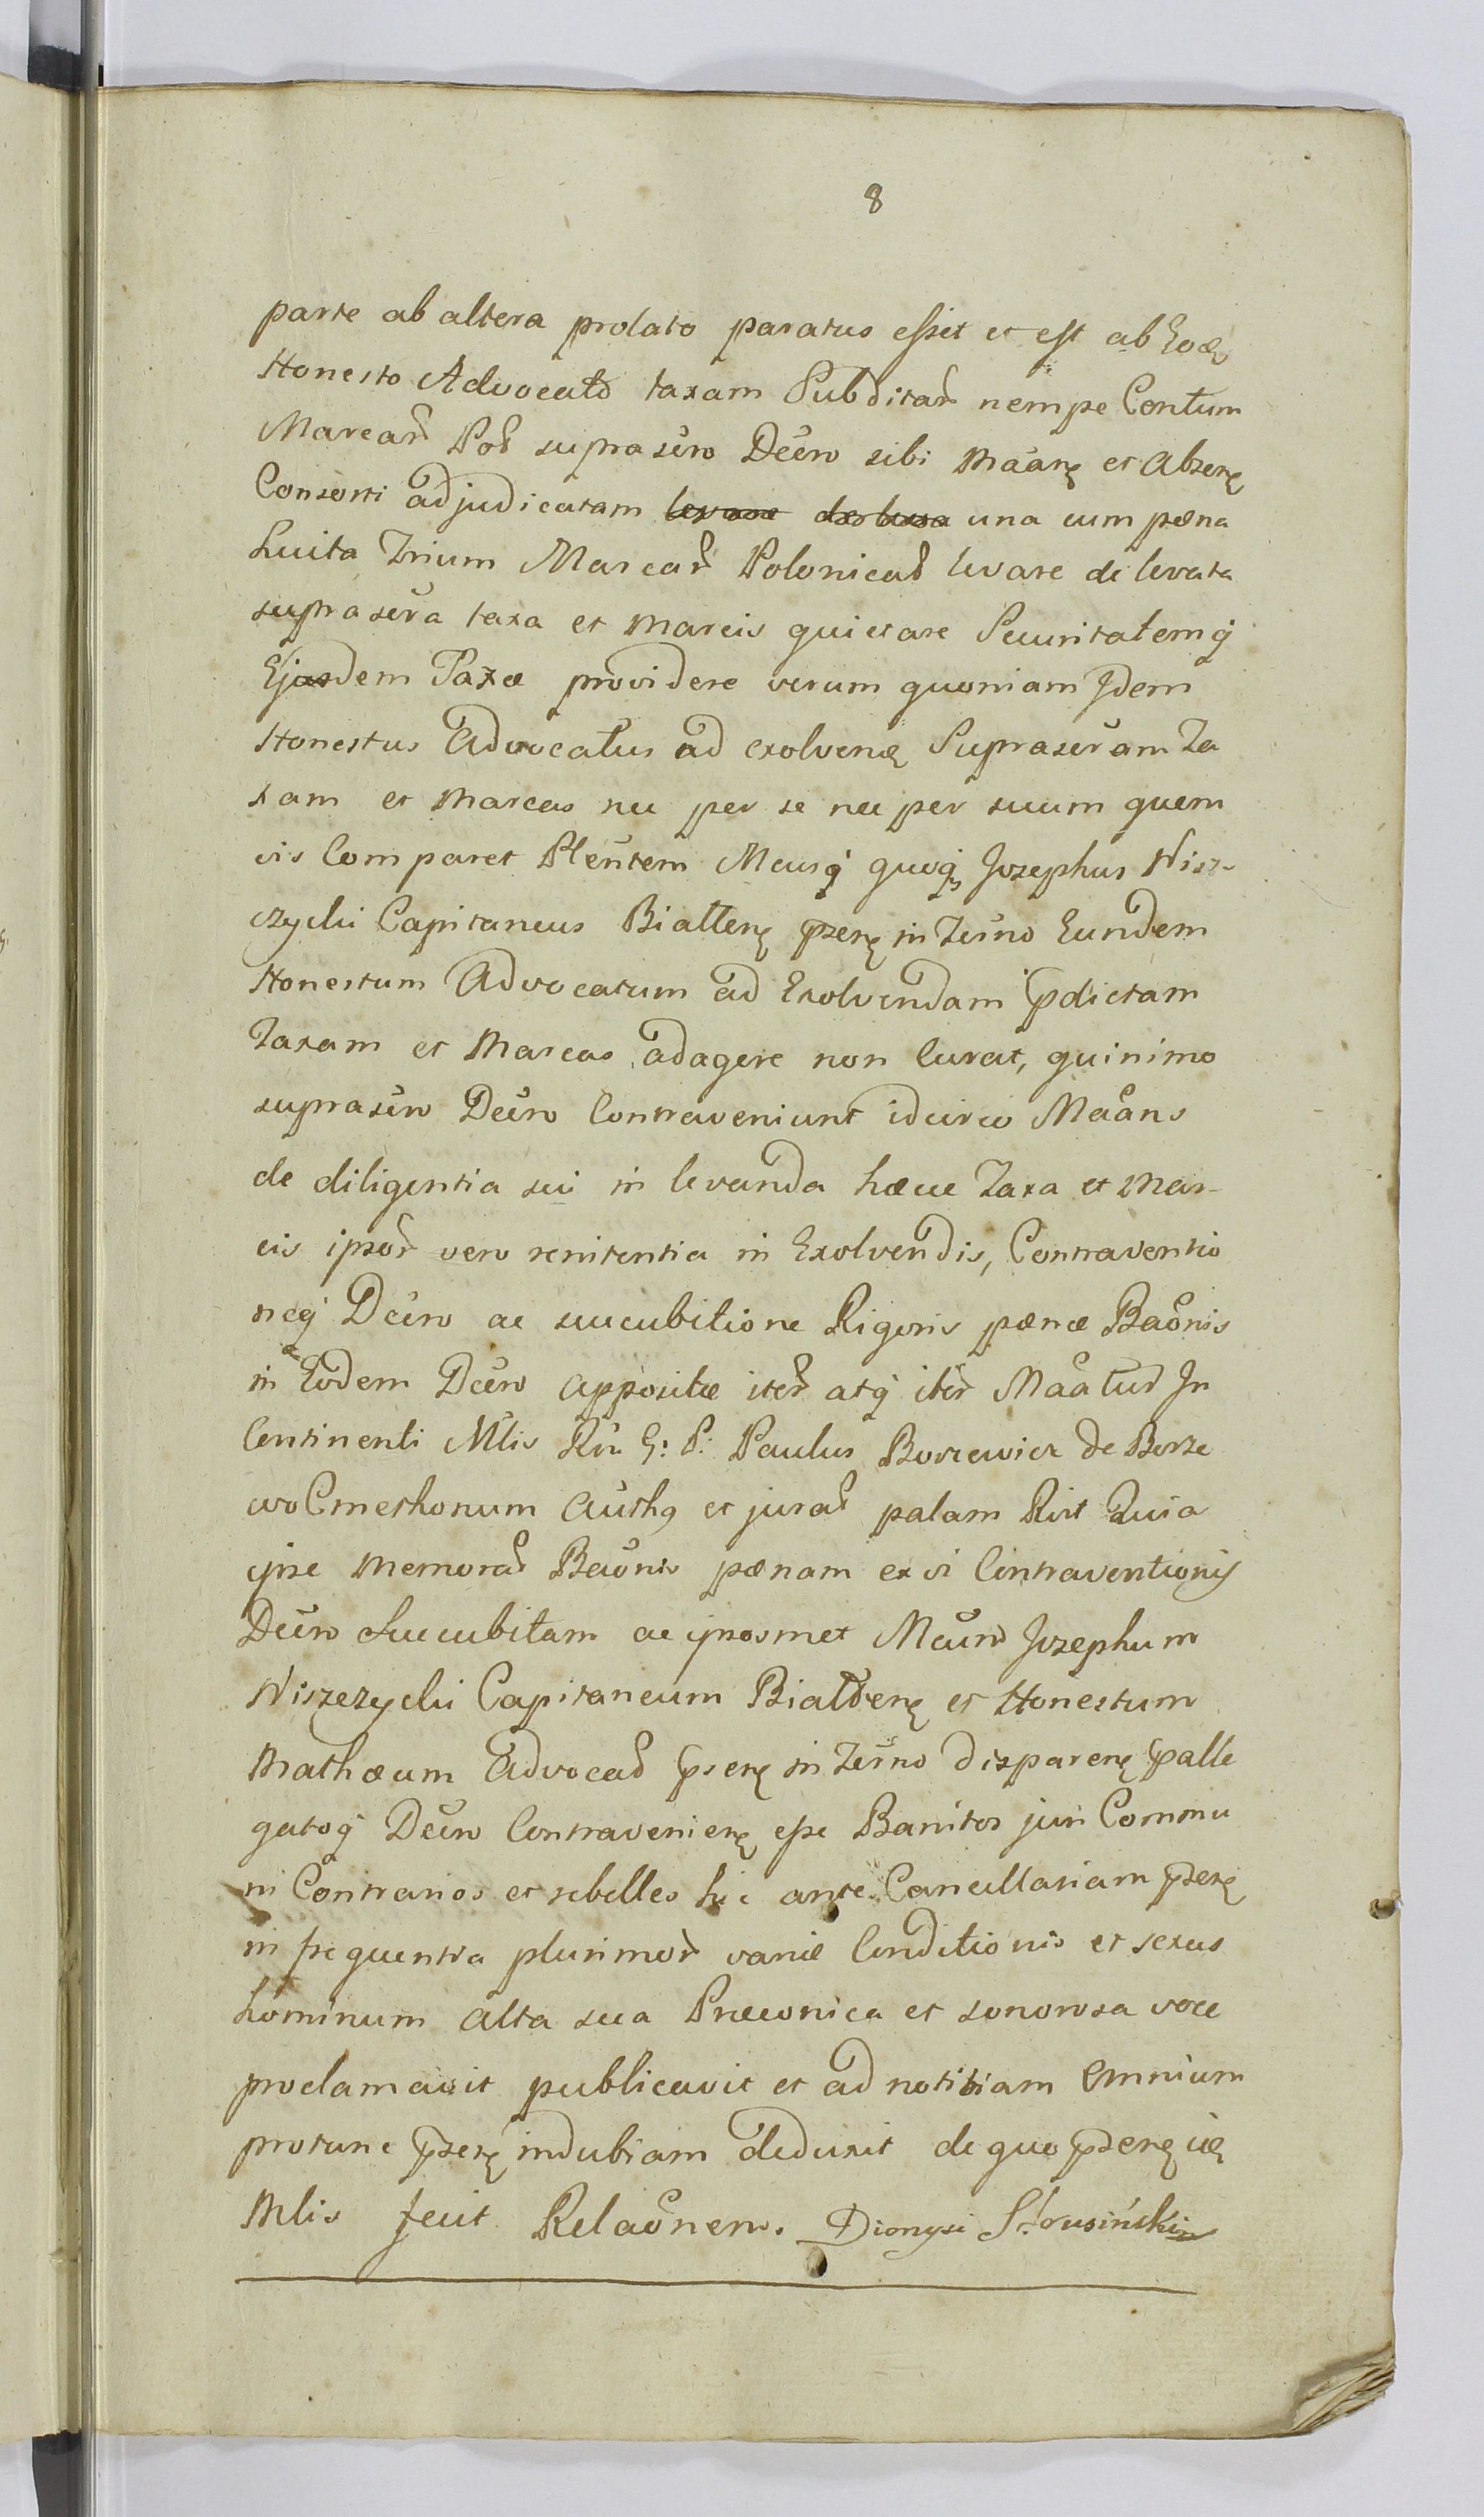 8
parte ab altera prolato paratus esset et est ab Eodę
Honesto Advocato taxam Subditar̃ nempe Centum
Marcar̃ Pol̃ suprascr̃o Decr̃o sibi Maãnę et absenę
Consorti adjudicatam levare una cum pæna
Luita Trium Marcar̃ Polonical̃ levare de levata
suprascr̃a taxa et marcis quietare Securitatemq̃
Ejusdem Taxæ providere verum quoniam Idem
Honestus Advocatus ad exolvenę Suprascr̃am Ta
xam et marcas nec per se nec per suum quem
vis Comparet Plen̄tem Mcusq̃ quoq̃ Jozephus Nisz-
czycki Capitaneus Bialtenę p̃senę in Ter̃no Eundem
Honestum Advocatum ad Exolvendam p̃dictam
Taxam et Marcas adagere non Curat, quinimo
suprascr̃o Decr̃o Contraveniunt idcirco Maãns
de diligentia sui in levanda hacce Taxa et Mar-
cis ipsor̃ vero renitentia in Exolvendis, Contraventio
neq̃ Decr̃o ac succubitione Rigoris pænæ Baõnis
in Eodem Decr̃o appositæ iter̃ atq̃ iter̃ Maãtur In
Continenti Mĩlis Rñ G: P: Paulus Borzewicz de Borze
wo Cmethonum Auth9 et jurat̃ palam Rivt Quia
ipse memorat̃ Baõnis pænam ex vi Contraventionis
Decr̃o Succubitam ac ipsosmet Mcum̃ Jozephum
Niszczycki Capitaneum Bialtenę et Honestum
Mathæum Advocat̃ p̃senę in Ter̃no disparenę p̃alle
gatoq̃ Decr̃o Contravenienę esse Banitos juri Commu
ni Contrarios et rebelles hic ante Cancellariam p̃senę
in frequentia plurimor̃ variæ Conditionis et sexus
hominum alta sua Præconica et sonorosa voce
proclamavit publicavit et ad notitiam Omnium
protunc p̃senę indubiam deduxit de quo p̃senę idę
Mlis fecit Relaõnem. Dionysi Strusiński